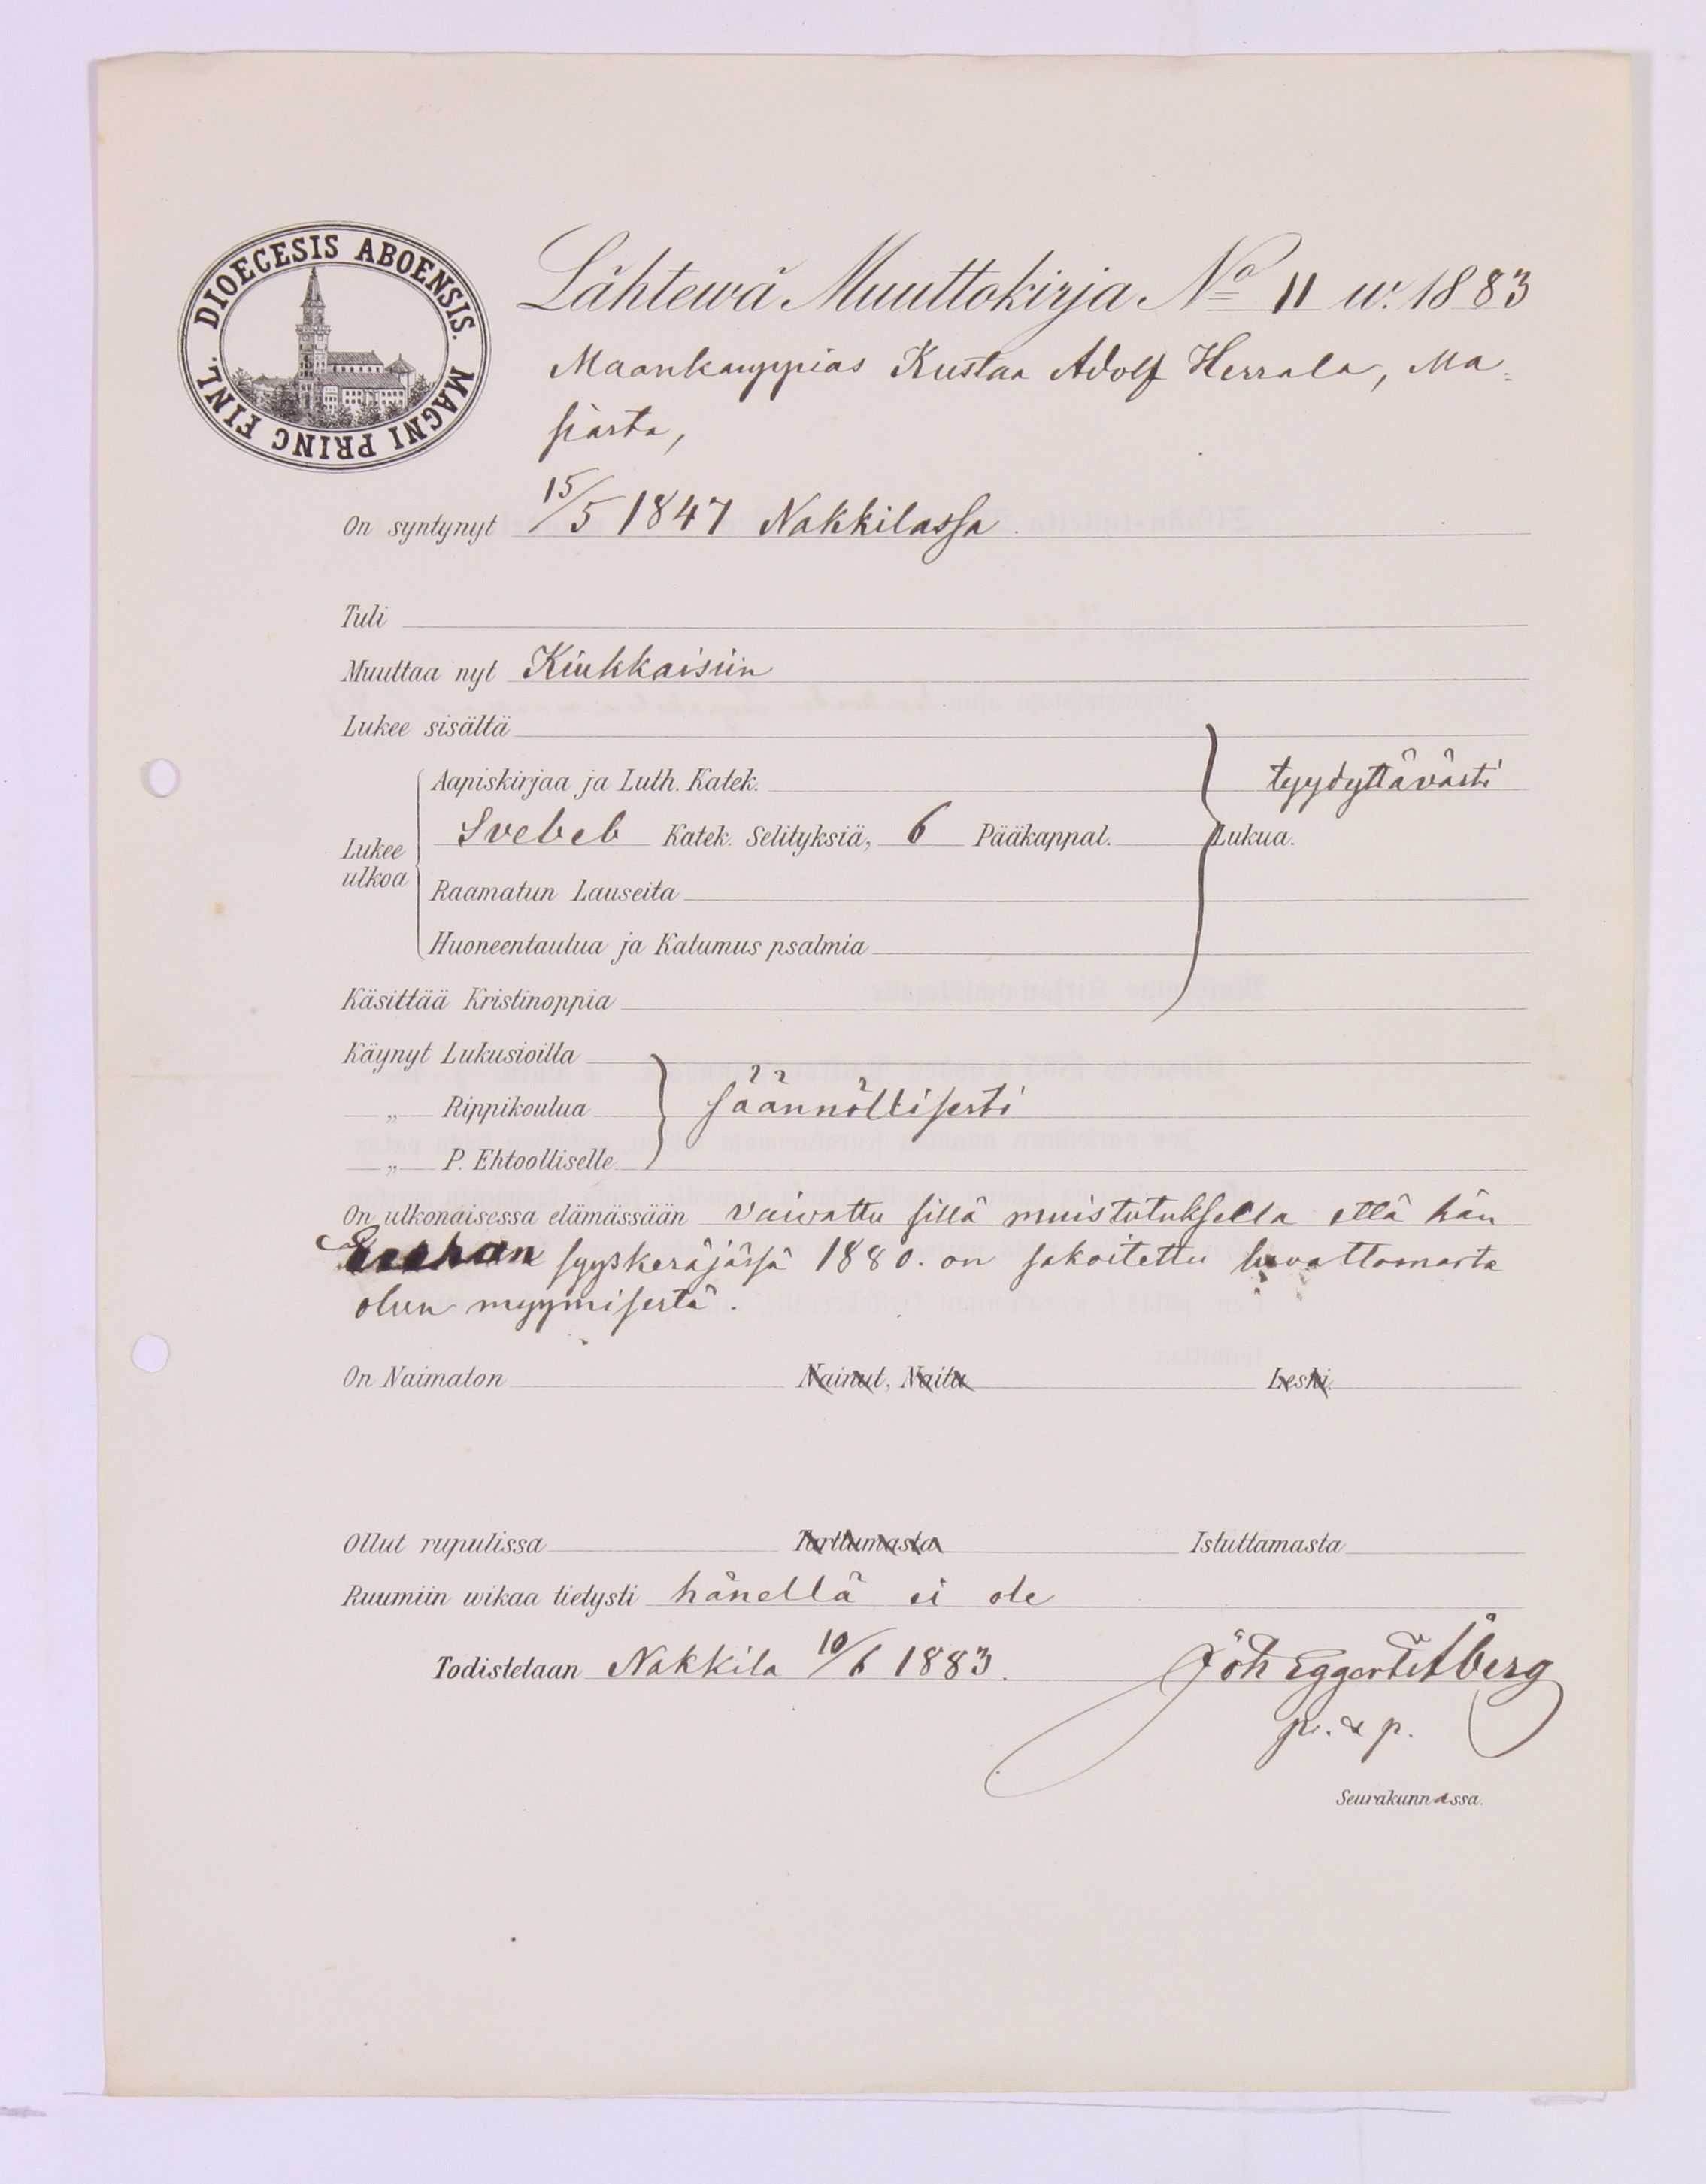 DIOECESIS ABOENSIS. MAGNI PRINC FINL.
Lähtewä Muuttokirja No 11 w. 1883
Maankauppias Kustaa Adolf Herrala, Ma=
siasta,
On syntynyt 15/5 1847 Nakkilassa.
Tuli
Muuttaa nyt Kiukkaisiin
Lukee sisältä
Aapiskirjaa ja Luth. Katek. tyydyttävästi
Lukee ulkoa Svebeb Katek. Selityksiä, 6 Pääkappal. Lukua.
Raamatun Lauseita
Huoneentaulua ja Katumus psalmia
Käsittää Kristinoppia
Käynyt Lukusioilla
„ Rippikoulua säännöllisesti
„ P. Ehtoolliselle
On ulkonaisessa elämässään vaivattu sillä muistutuksella että hän
syyskeräjässä 1880. on sakoitettu luvattomasta
olun myymisestä.
On Naimaton Nainut, Naitu Leski.
Ollut rupulissa Tarttumasta Istuttamasta
Ruumiin wikaa tietysti hänellä ei ole
Todistetaan Nakkila 10/6 1883. Joh Eggert Åberg
Seurakunnassa.